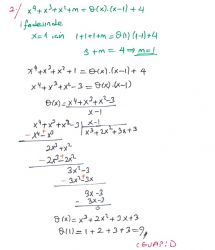 2/ x⁴+x³+x²+m = θ(x).(x-1)+4
ifadesinde
x=1 için 1+1+1+m = θ(1)(1-1)+4
3+m = 4 → m=1
x⁴+x³+x²+1 = θ(x).(x-1)+4
x⁴+x³+x²-3 = θ(x).(x-1)
θ(x) = x⁴+x³+x²-3
x-1
x⁴+x³+x²-3 | x-1
x³+2x²+3x+3
2x³+x²
3x²-3
3x-3
0
θ(x) = x³+2x²+3x+3
θ(1) = 1+2+3+3 = 9
CEVAP: D